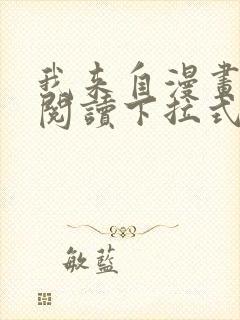 我来自漫畫
閱讀下拉式
敏藍